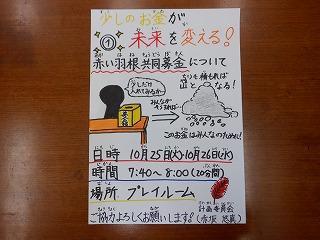 少しのお金が
① 未来を変える!
赤い羽根共同募金について
少しだけ
入れてみるか〜
ちりも積もれば
山となる!
みんなが
そうすれば…
このお金はみんなのために!
日時 10月25日(火)・10月26日(水)
時間 7:40〜8:00(20分間)
場所 プレイルーム
ご協力よろしくお願いします!
計画委員会